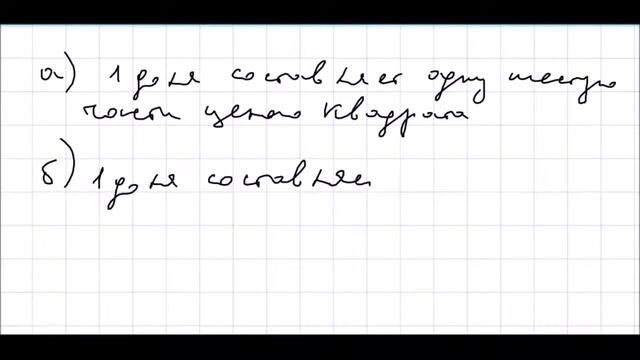 а) 1 доля составляет одну шестую
части целого квадрата
б) 1 доля составляе